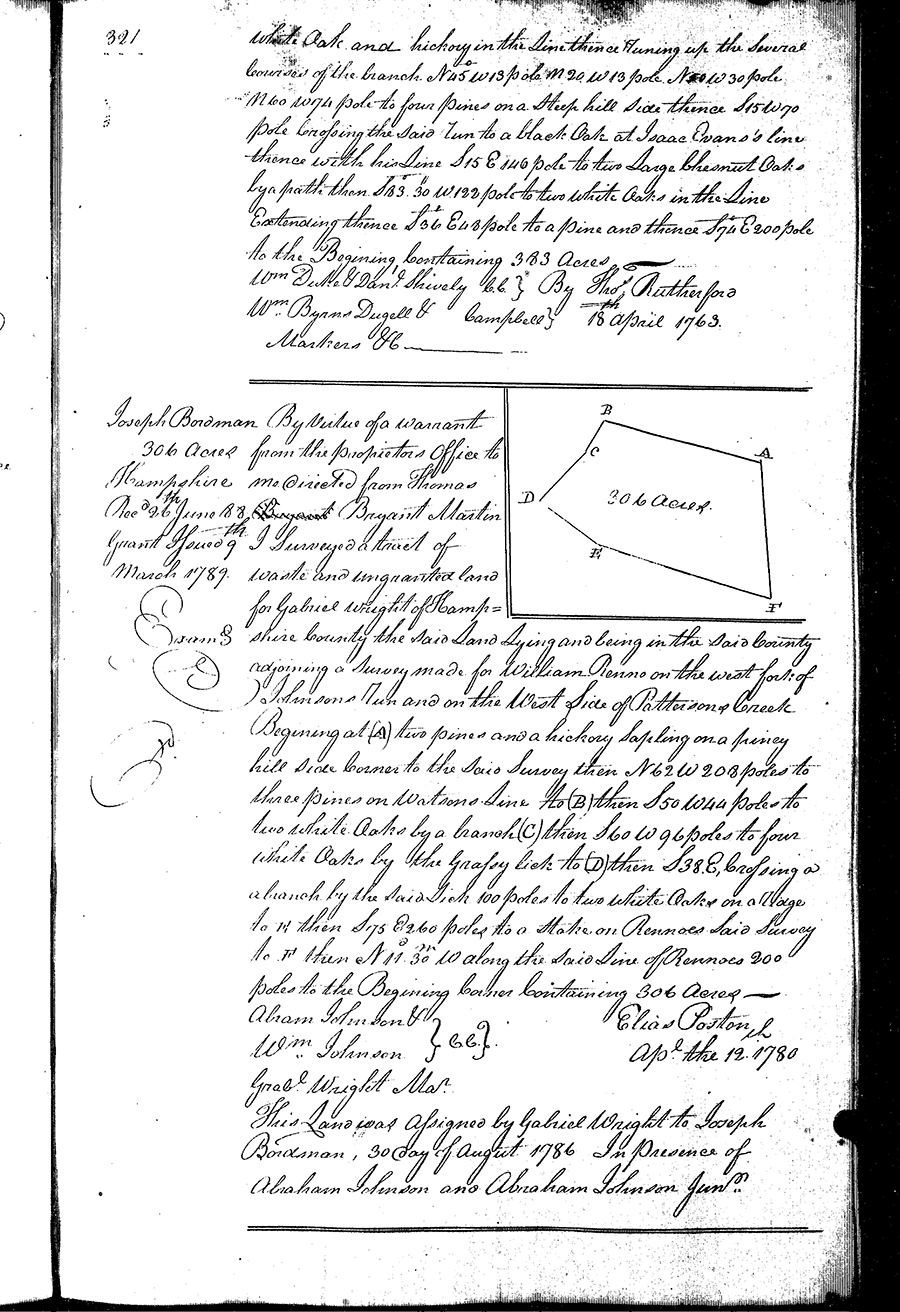 321
white Oak and hickory in the Line thence Runing up the Several
Courses of the branch N45°W 13 pole N 20 W 13 pole N50W 30 pole
N60 W74 pole to four pines on a Steep hill Side thence S15W70
pole Crossing the said Run to a black Oak at Isaac Evans's line
thence with his Line S15 E 140 pole to two Large Chesnut Oaks
by a path then S83°.30" W122 pole to two white Oaks in the Line
Extending thence S36 E48 pole to a pine and thence S74E200 pole
to the Begining Containing 383 Acres
Wm Duke & Danl. Shively CC } By Thos. Rutherford
Wm. Byrns Dugell & Campbell } 18th april 1763.
Markers &C
Joseph Bordman
306 Acres
Hampshire
Recd 26th June 188
Grant Issued 9th
March 1789.
Examd
By Virtue of a warrant
from the proprietors Office to
me directed from Thomas
Bryant Bryant Martin
I Surveyed a tract of
waste and ungranted land
for Gabriel wright of Hamp=
B
A
C
D
306 Acres.
E
F
shire County the said Land Lying and being in the said County
adjoining a Survey made for William Renno on the west fork of
Johnsons Run and on the West Side of Pattersons Creek
Begining at (A) two pines and a hickory Sapling on a piney
hill side Corner to the said Survey then N62W 208 poles to
three pines on Watsons Line to (B) then S50 W44 poles to
two white Oaks by a branch (C) then S60 W 96 poles to four
white Oaks by the Grassy Lick to (D) then S38.E, Crossing a
abranch by the said Lick 100 poles to two white Oaks on a Ridge
to E then S75 E260 poles to a Stake on Rennoes Said Survey
to F then N11°.30m W along the said Line of Rennoes 200
poles to the Begining Corner Containing 306 Acres
Abram Johnson &
Wm. Johnson } CC.
Elias Poston
Apl. the 12th 1780
Grabl. Wright Mar.
This Land was Assigned by Gabriel Wright to Joseph
Bordman, 30 day of August 1786 In Presence of
Abraham Johnson and Abraham Johnson Junr.